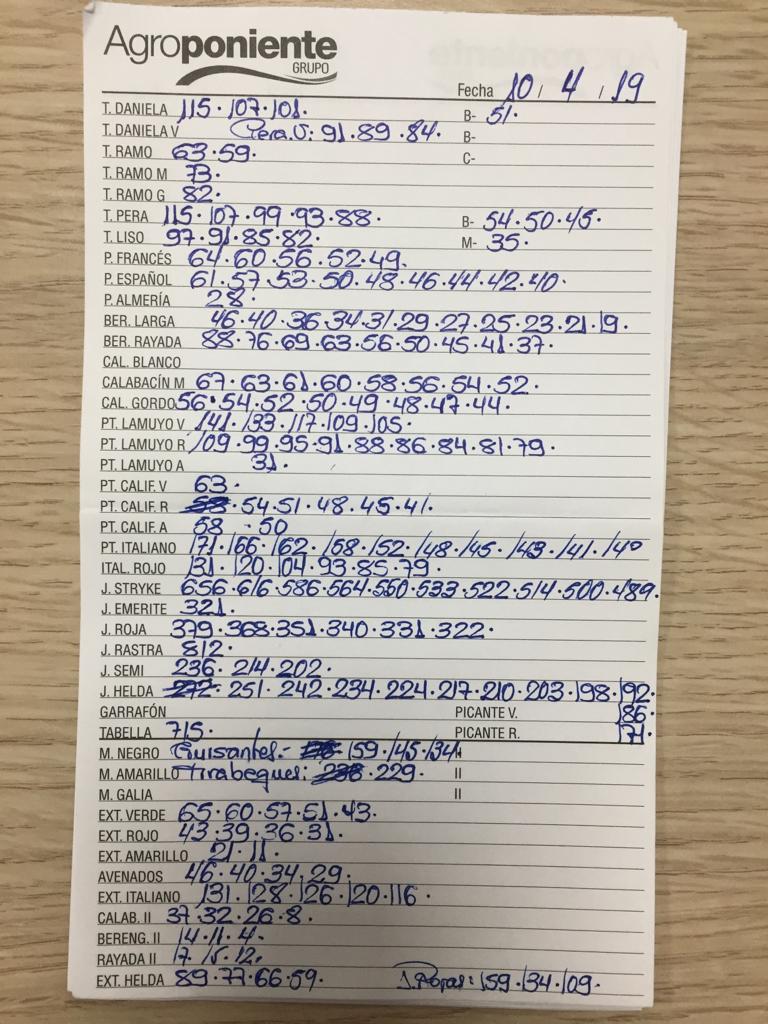 Agroponiente
GRUPO
Fecha 10 / 4 / 19
T. DANIELA 115 · 107 · 101 · B- 51 ·
T. DANIELA V Pera.V: 91 · 89 · 84 · B-
T. RAMO 63 · 59 · C-
T. RAMO M 73 ·
T. RAMO G 82 ·
T. PERA 115 · 107 · 99 · 93 · 88 · B- 54 · 50 · 45 ·
T. LISO 97 · 91 · 85 · 82 · M- 35 ·
P. FRANCÉS 64 · 60 · 56 · 52 · 49 ·
P. ESPAÑOL 61 · 57 · 53 · 50 · 48 · 46 · 44 · 42 · 40 ·
P. ALMERÍA 28 ·
BER. LARGA 46 · 40 · 36 · 34 · 31 · 29 · 27 · 25 · 23 · 21 · 19 ·
BER. RAYADA 88 · 76 · 69 · 63 · 56 · 50 · 45 · 41 · 37 ·
CAL. BLANCO
CALABACÍN M 67 · 63 · 61 · 60 · 58 · 56 · 54 · 52 ·
CAL. GORDO 56 · 54 · 52 · 50 · 49 · 48 · 47 · 44 ·
PT. LAMUYO V 141 · 133 · 117 · 109 · 105 ·
PT. LAMUYO R 109 · 99 · 95 · 91 · 88 · 86 · 84 · 81 · 79 ·
PT. LAMUYO A 31 ·
PT. CALIF. V 63 ·
PT. CALIF. R 54 · 51 · 48 · 45 · 41 ·
PT. CALIF. A 58 · 50
PT. ITALIANO 171 · 166 · 162 · 158 · 152 · 148 · 145 · 143 · 141 · 140
ITAL. ROJO 131 · 120 · 104 · 93 · 85 · 79 ·
J. STRYKE 656 · 616 · 586 · 564 · 550 · 533 · 522 · 514 · 500 · 489 ·
J. EMERITE 321 ·
J. ROJA 379 · 368 · 351 · 340 · 331 · 322 ·
J. RASTRA 812 ·
J. SEMI 236 · 214 · 202 ·
J. HELDA 272 · 251 · 242 · 234 · 224 · 217 · 210 · 203 · 198 · 192 ·
GARRAFÓN PICANTE V. 186 ·
TABELLA 715 · PICANTE R. 171 ·
M. NEGRO Guisantes:- 159 · 145 · 134 ·
M. AMARILLO Tirabeques: 238 · 229 · II
M. GALIA II
EXT. VERDE 65 · 60 · 57 · 51 · 43 ·
EXT. ROJO 43 · 39 · 36 · 31 ·
EXT. AMARILLO 21 · 11 ·
AVENADOS 46 · 40 · 34 · 29 ·
EXT. ITALIANO 131 · 128 · 126 · 120 · 116 ·
CALAB. II 37 · 32 · 26 · 8 ·
BERENG. II 14 · 11 · 4 ·
RAYADA II 17 · 15 · 12 ·
EXT. HELDA 89 · 77 · 66 · 59 · 159 · 134 · 109 ·